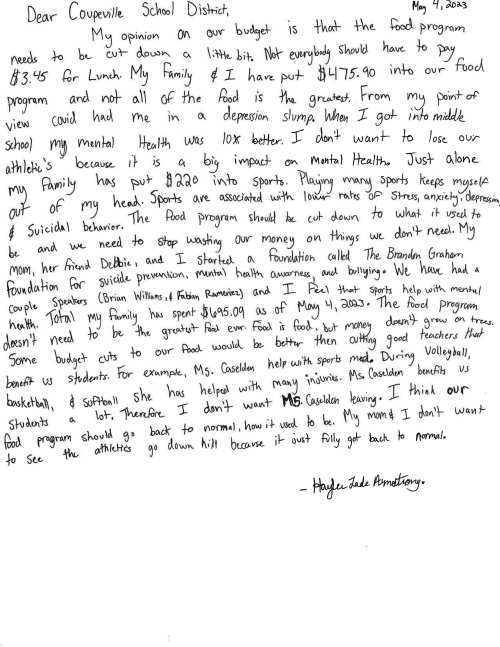 May 4, 2023
Dear Coupeville School District,
My opinion on our budget is that the food program
needs to be cut down a little bit. Not everybody should have to pay
$3.45 for Lunch. My Family & I have put $475.90 into our food
program and not all of the food is the greatest. From my point of
view covid had me in a depression slump. When I got into middle
school my mental Health was 10x better. I don't want to lose our
athletic's because it is a big impact on Mental Health. Just alone
my family has put $220 into sports. Playing many sports keeps myself
out of my head. Sports are associated with lower rates of stress, anxiety, depression,
& Suicidal behavior. The food program should be cut down to what it used to
be and we need to stop wasting our money on things we don't need. My
mom, her friend Debbie, and I started a foundation called The Brandon Graham
foundation for suicide prevention, mental health awarness, and bullying. We have had a
couple speakers (Brian Williams, & Fabian Rameriez) and I feel that sports help with mental
health. Total my family has spent $695.09 as of May 4, 2023. The food program
doesn't need to be the greatest food ever. Food is food, but money doesn't grow on trees.
Some budget cuts to our food would be better then cutting good teachers that
benefit us students. For example, Ms. Caselden help with sports med. During Volleyball,
basketball, & softball she has helped with many injuries. Ms. Caselden benefits us
students a lot. Therefore I don't want Ms. Caselden leaving. I think our
food program should go back to normal, how it used to be. My mom & I don't want
to see the athletics go down hill because it just fully got back to normal.
- Haylee Jade Armstrong.